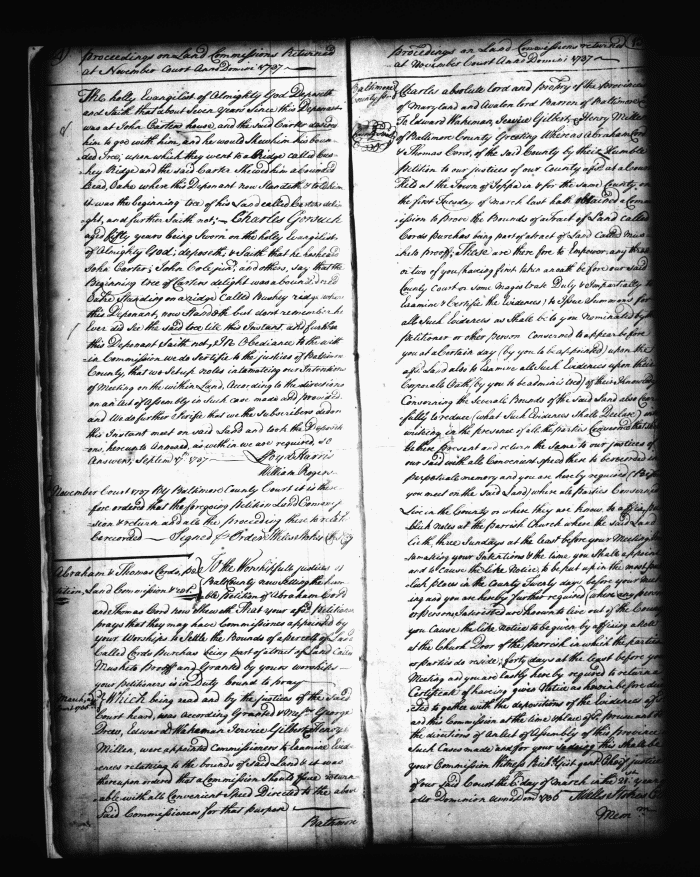 Proceedings on Land Commissions Returned
at November Court Anno Domini 1737
The holly Evangilist of Almighty God Deposeth
and Saith that about Seven years Since this Deponant
was at John Carters house, and the said Carter desired
him to goe with him, and he would shew him his boun-
ded tree, upon which they went to a Ridge called Bus-
hey Ridge and the said Carter Shewed him a bounded
Read Oake where this Deponant now Standeth & told him
it was the beginning tree of his Land called Carters deli-
ght, and further Saith not; Charles Gorsuch
aged fifty years being Sworn on the holly Evangilist
of Almighty God; deposeth, & Saith that he has heard
John Carter, John and others, say that the
Beginning tree of Carters delight was a bounded red
Oake Standing on a ridge Called Bushey ridge where
this Deponant, now Standeth but dont remember he
Ever did see the said tree till this Instant and further
this Deponant Saith not, In Obediance to the with-
in Commission we do Certifie to the justices of Baltimore
County, that we Set up notes intimateing our Intentions
of Meeting on the within Land, According to the directions
on an Act of Assembly in Such case made and provided
and We do further Certifie that we the Subscribers did on
this Instant meet on said Land and took the Deposit-
ions, hereunto Annexed, as within we are required, so
Answers, Septem 1737 Loyd Harris
William Rogers
November Court 1737 By Baltimore County Court it is there-
fore ordered that the foregoing Petition Land Commis-
sion & return and all the proceeding thereto relat
be recorded Signed Order
Abraham & Thomas Cords, pe-
tition, Land Commission &
To the Worshipfull justices of
Balt County now sitting the hum-
ble Petition of Abraham Cord
and Thomas Cord now Sheweth That your afd Petitioners
prays that they may have Commissioners appointed by
your Worships to Settle the Bounds of a parcell of Land
Called Cords Purchas being part of a tract of Land Called
Musketo Prooff and Granted by yours worships
your Petitioners is in Duty bound to pray
Which being read and by the justices of the Said
Court heard, was according Granted & George
Drew, Edward Wakeman Jervice Gilbert & Henry
Millen, were appointed Commissioners to Examine Evid-
ences relating to the bounds of said Land & it was
thereupon ordered that a Commission Should Issue return-
able with all Convenient Speed Directed to the above
Said Commissioners for that Purpose
Baltimore
Proceedings on Land Commissions returned
at November Court Anno Domini 1737
Baltimore
County
Charles absolute lord and propry of the Province
of Maryland and Avalon lord Barron of Baltimore
To Edward Wakeman Jervice Gilbert & Henry Millen
of Baltimore County Greeting Whereas Abraham Cord
& Thomas Cord, of the Said County by their Humble
Petition to our justices of our County afsd at a Court
Held at the Town of Joppa in & for the Same County, on
the first Tuesday of March last hath obtained a Comm-
ission to Prove the Bounds of a tract of Land called
Cords Purchas being part of a tract of Land Called Mus-
keto prooff; These are there fore to Empower any three
or two of you, having first taken an oath before our said
County Court or Some Magistrate Duly & Impartially to
Examine & Certifie the Evidences) to Issue Summons for
all Such Evidences as Shall be to you Nominated by
Petitioner or other Person Concerned to appear before
you at a Certain day (by you to be appointed) upon the
afsd Land also to Examine all Such Evidences upon their
Corporall Oath, by you to be administred) of their Knowledge
Concerning the Severall Bounds of the Said Land also
fully to reduce (what Such Evidences Shall Declare) in
writing in the presence of all the parties Concerned that
be there present and return the Same to our justices of
our Said with all Convenient Speed there to be recorded in
perpetuall memory and you are hereby required (Before
you meet on the Said Land) where all parties Concerned
Live in the County or they are known, to affix
Publick Notes at the Parrish Church where the Said Land
lieth, three Sundays at the least before your Meeting
making your Intentions & the time you Shall appoint
and to Cause the like Notice, to be put up in the most pub-
lick places in the County Twenty days before your meet-
ing and you are hereby further required (where any person
or persons, Interested are known to live out of the County
you Cause the like notice to be given, by affixing a Note
at the Church Door of the Parrish in which the parties
or partie do reside; forty days at the least before your
Meeting and you are lastly here by required to return a
Certificate of haveing given Notice as herein before direc-
ted to gather with the depositions of the Evidences afd
and this Commission at the time & place afd pursuant to
the directions of an Act of Assembly of this Province
Such Cases made and for your So doing this Shall be
your Commission Witness Richd Gist gent Chief justice
of our Said Court the 6 day of March in the 21st year
of our Dominion Annodom 1735
Mem